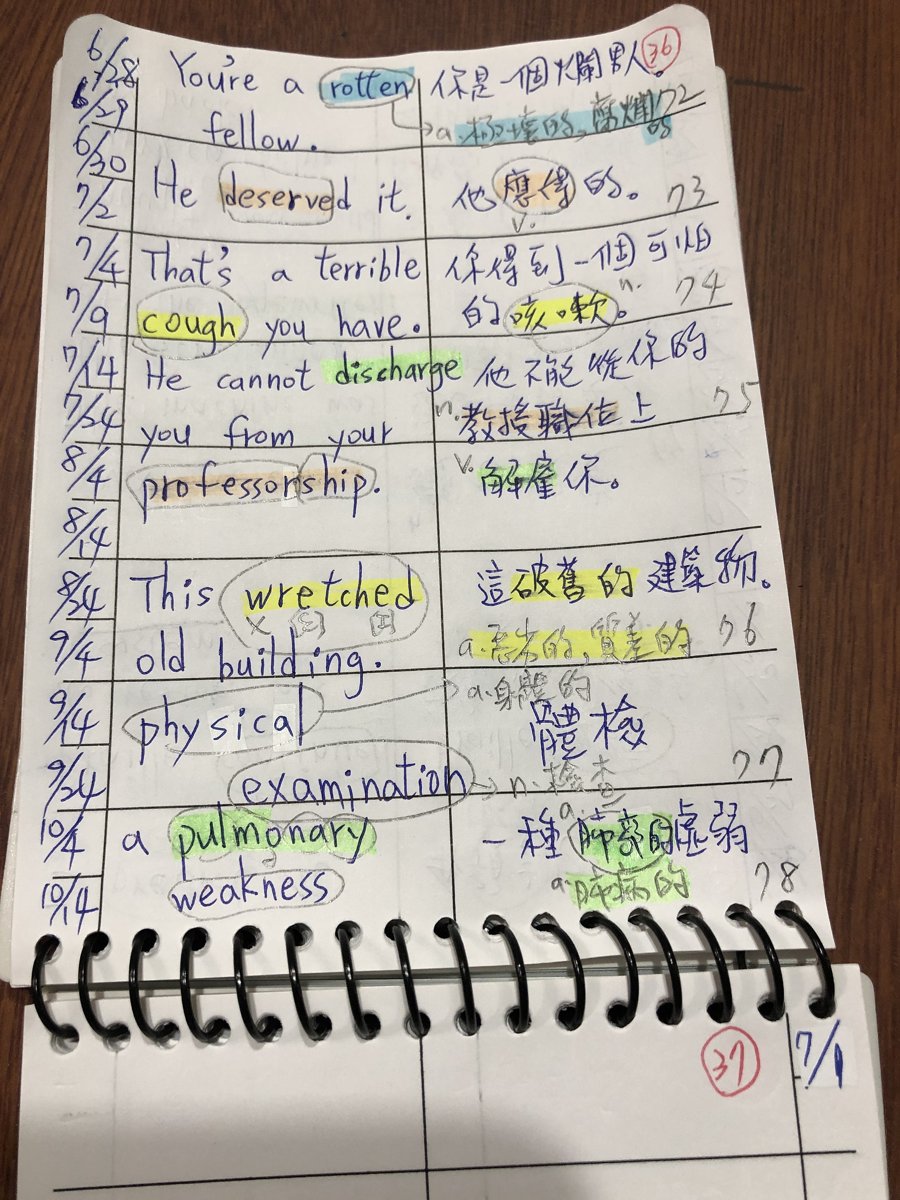 36
6/28
6/29
You're a rotten
fellow.
你是一個爛男人。
a.極壞的,腐爛的
72
6/30
7/2
He deserved it.
他應得的。
v.
73
7/4
7/9
That's a terrible
cough you have.
你得到一個可怕
的咳嗽。
n.
74
7/14
7/24
8/4
8/14
He cannot discharge
you from your
professorship.
他不能從你的
n.
教授職位上
v.
解雇你。
75
8/24
9/4
This wretched
old building.
這破舊的建築物。
a.惡劣的,質差的
76
9/14
9/24
physical
examination
a.身體的
體檢
n.檢查
77
10/4
10/14
a pulmonary
weakness
a.
一種肺部的虛弱
a.肺病的
78
37
7/1